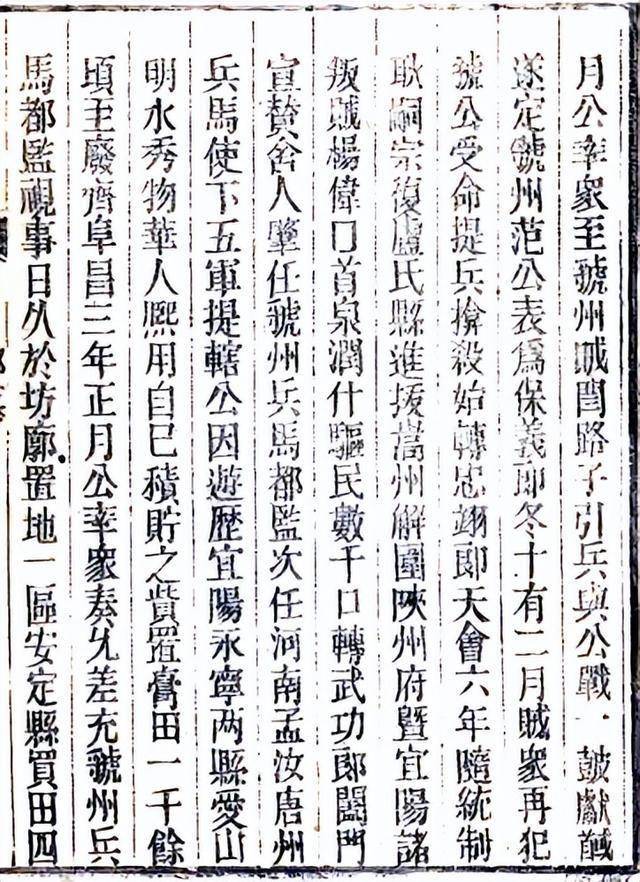 月公率衆至虢州城閻路子引兵與公戰一鼓獻馘
遂定虢州范公表爲保義郎冬十有二月賊衆再犯
虢公受命提兵搶殺始轉忠翊郎天會六年隨統制
耿嗣宗復盧氏縣進援嵩州解圍陜州府暨宜陽諸
叛賊楊偉口首泉澗什驅民數千口轉武功郎閤門
宣贊舍人肇任虢州兵馬都監次任河南孟汝唐州
兵馬使下五軍提轄公因遊歷宜陽永寧两縣愛山
明水秀物華人熈用自已積貯之貲置膏田一千餘
頃至廢齊阜昌三年正月公率衆奏允差充虢州兵
馬都監視事日久於坊廓置地一區安定縣買田四